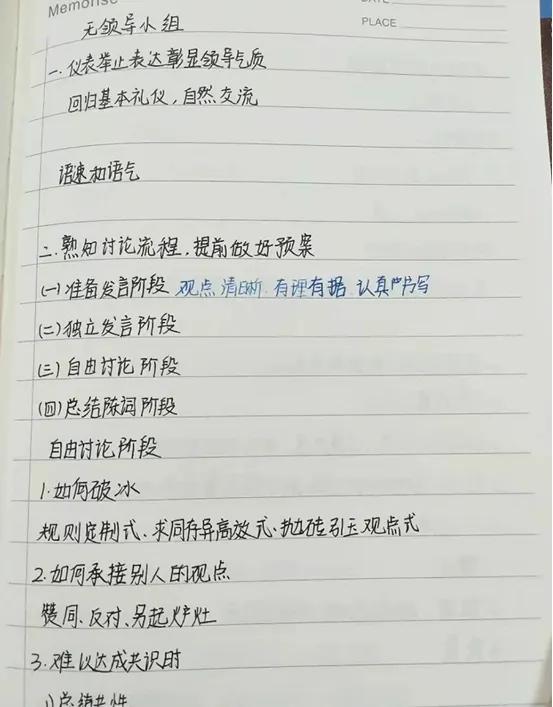 Memorise
DATE
PLACE
无领导小组
一.仪表举止表达彰显领导气质
回归基本礼仪,自然交流
语速和语气
二.熟知讨论流程,提前做好预案
(一)准备发言阶段 观点清晰 有理有据 认真书写
(二)独立发言阶段
(三)自由讨论阶段
(四)总结陈词阶段
自由讨论阶段
1.如何破冰
规则定制式、求同存异高效式、抛砖引玉观点式
2.如何承接别人的观点
赞同、反对、另起炉灶
3.难以达成共识时